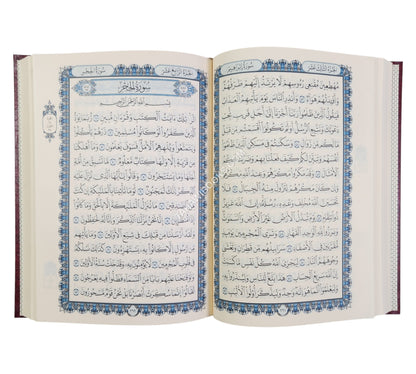 سورة إبراهيم
الجزء الثالث عشر
مُهْطِعِينَ مُقْنِعِي رُءُوسِهِمْ لَا يَرْتَدُّ إِلَيْهِمْ طَرْفُهُمْ
وَأَفْـِٔدَتُهُمْ هَوَآءٌ ۝ وَأَنذِرِ ٱلنَّاسَ يَوْمَ يَأْتِيهِمُ ٱلْعَذَابُ
فَيَقُولُ ٱلَّذِينَ ظَلَمُوا۟ رَبَّنَآ أَخِّرْنَآ إِلَىٰٓ أَجَلٍ قَرِيبٍ
نُّجِبْ دَعْوَتَكَ وَنَتَّبِعِ ٱلرُّسُلَ أَوَلَمْ تَكُونُوٓا۟ أَقْسَمْتُم مِّن
قَبْلُ مَا لَكُم مِّن زَوَالٍ ۝ وَسَكَنتُمْ فِى مَسَٰكِنِ ٱلَّذِينَ
ظَلَمُوٓا۟ أَنفُسَهُمْ وَتَبَيَّنَ لَكُمْ كَيْفَ فَعَلْنَا بِهِمْ وَضَرَبْنَا
لَكُمُ ٱلْأَمْثَالَ ۝ وَقَدْ مَكَرُوا۟ مَكْرَهُمْ وَعِندَ ٱللَّهِ مَكْرُهُمْ
وَإِن كَانَ مَكْرُهُمْ لِتَزُولَ مِنْهُ ٱلْجِبَالُ ۝ فَلَا
تَحْسَبَنَّ ٱللَّهَ مُخْلِفَ وَعْدِهِۦ رُسُلَهُۥٓ إِنَّ ٱللَّهَ عَزِيزٌ ذُو ٱنتِقَامٍ ۝
يَوْمَ تُبَدَّلُ ٱلْأَرْضُ غَيْرَ ٱلْأَرْضِ وَٱلسَّمَٰوَٰتُ وَبَرَزُوا۟ لِلَّهِ
ٱلْوَٰحِدِ ٱلْقَهَّارِ ۝ وَتَرَى ٱلْمُجْرِمِينَ يَوْمَئِذٍ مُّقَرَّنِينَ
فِى ٱلْأَصْفَادِ ۝ سَرَابِيلُهُم مِّن قَطِرَانٍ وَتَغْشَىٰ
وُجُوهَهُمُ ٱلنَّارُ ۝ لِيَجْزِىَ ٱللَّهُ كُلَّ نَفْسٍ مَّا كَسَبَتْ
إِنَّ ٱللَّهَ سَرِيعُ ٱلْحِسَابِ ۝ هَٰذَا بَلَٰغٌ لِّلنَّاسِ وَلِيُنذَرُوا۟ بِهِۦ
وَلِيَعْلَمُوٓا۟ أَنَّمَا هُوَ إِلَٰهٌ وَٰحِدٌ وَلِيَذَّكَّرَ أُو۟لُوا۟ ٱلْأَلْبَٰبِ ۝
الجزء الرابع عشر
سورة الحجر
سُورَةُ الحِجْرِ
بِسْمِ ٱللَّهِ ٱلرَّحْمَٰنِ ٱلرَّحِيمِ
الٓر تِلْكَ ءَايَٰتُ ٱلْكِتَٰبِ وَقُرْءَانٍ مُّبِينٍ ۝ رُّبَمَا يَوَدُّ
ٱلَّذِينَ كَفَرُوا۟ لَوْ كَانُوا۟ مُسْلِمِينَ ۝ ذَرْهُمْ يَأْكُلُوا۟
وَيَتَمَتَّعُوا۟ وَيُلْهِهِمُ ٱلْأَمَلُ فَسَوْفَ يَعْلَمُونَ ۝ وَمَآ أَهْلَكْنَا
مِن قَرْيَةٍ إِلَّا وَلَهَا كِتَابٌ مَّعْلُومٌ ۝ مَّا تَسْبِقُ مِنْ أُمَّةٍ
أَجَلَهَا وَمَا يَسْتَـْٔخِرُونَ ۝ وَقَالُوا۟ يَٰٓأَيُّهَا ٱلَّذِى نُزِّلَ عَلَيْهِ
ٱلذِّكْرُ إِنَّكَ لَمَجْنُونٌ ۝ لَّوْ مَا تَأْتِينَا بِٱلْمَلَٰٓئِكَةِ إِن كُنتَ
مِنَ ٱلصَّٰدِقِينَ ۝ مَا نُنَزِّلُ ٱلْمَلَٰٓئِكَةَ إِلَّا بِٱلْحَقِّ وَمَا كَانُوٓا۟
إِذًا مُّنظَرِينَ ۝ إِنَّا نَحْنُ نَزَّلْنَا ٱلذِّكْرَ وَإِنَّا لَهُۥ لَحَٰفِظُونَ ۝
وَلَقَدْ أَرْسَلْنَا مِن قَبْلِكَ فِى شِيَعِ ٱلْأَوَّلِينَ ۝ وَمَا يَأْتِيهِم
مِّن رَّسُولٍ إِلَّا كَانُوا۟ بِهِۦ يَسْتَهْزِءُونَ ۝ كَذَٰلِكَ نَسْلُكُهُۥ
فِى قُلُوبِ ٱلْمُجْرِمِينَ ۝ لَا يُؤْمِنُونَ بِهِۦ وَقَدْ خَلَتْ سُنَّةُ ٱلْأَوَّلِينَ ۝
وَلَوْ فَتَحْنَا عَلَيْهِم بَابًا مِّنَ ٱلسَّمَآءِ فَظَلُّوا۟ فِيهِ يَعْرُجُونَ ۝
لَقَالُوٓا۟ إِنَّمَا سُكِّرَتْ أَبْصَٰرُنَا بَلْ نَحْنُ قَوْمٌ مَّسْحُورُونَ ۝